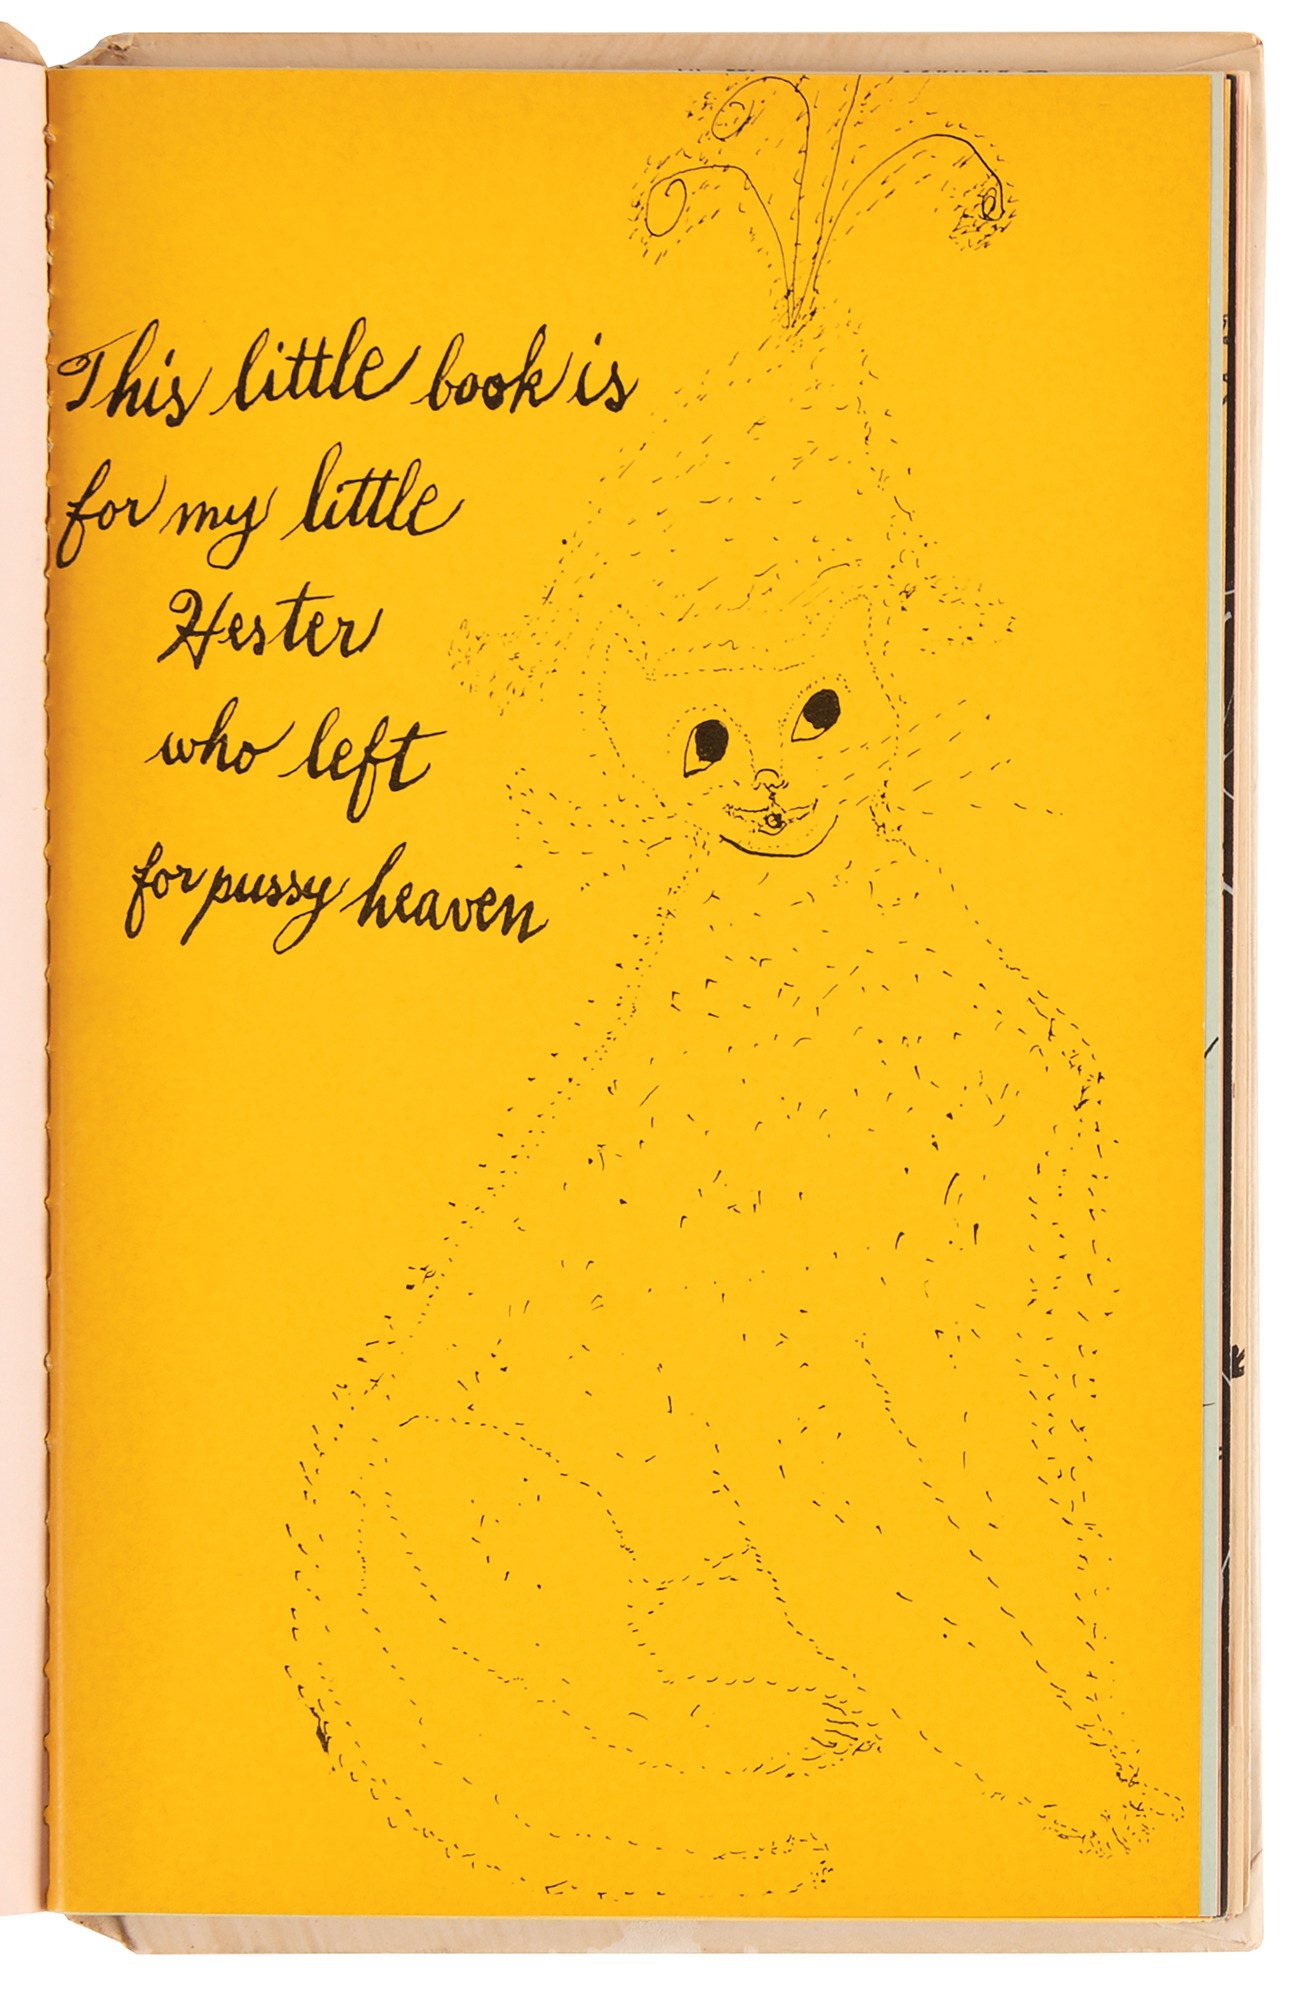 This little book is
for my little
Hester
who left
for pussy heaven